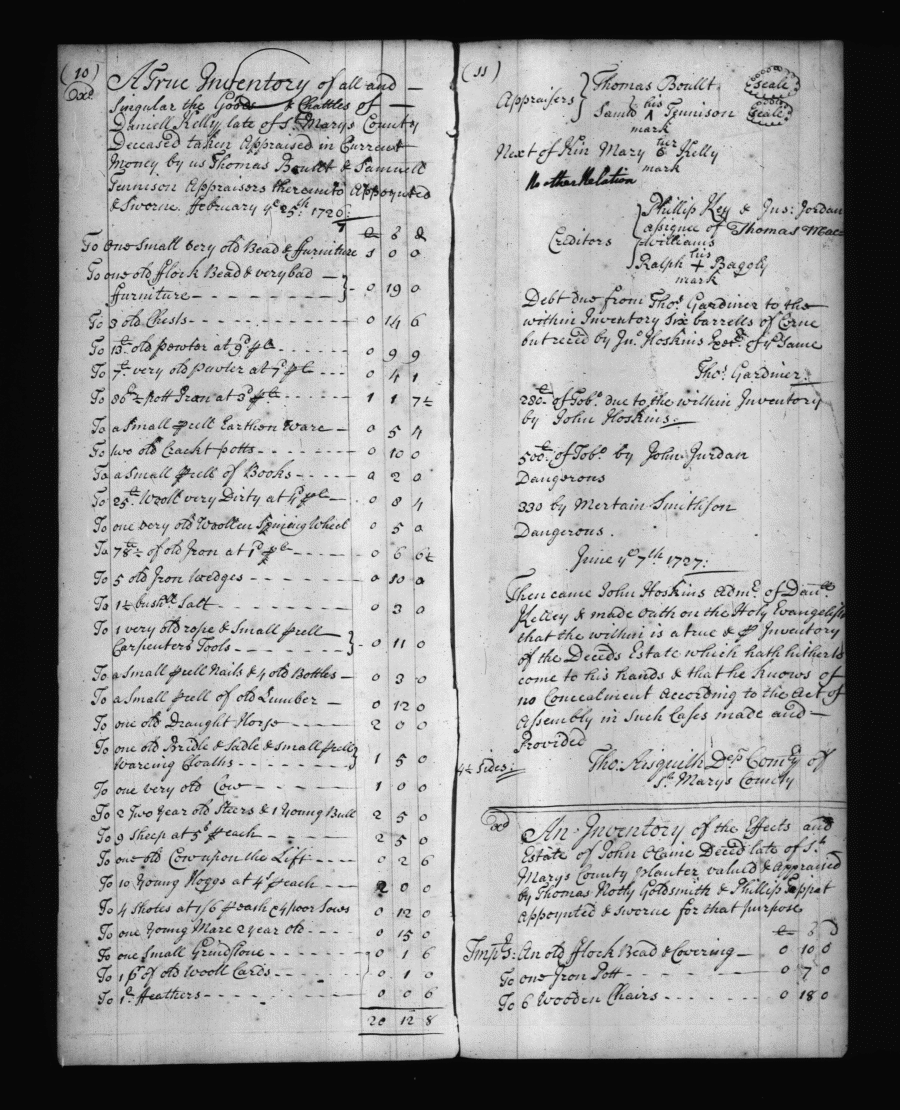 (10)
Exd
A True Inventory of all and
Singular the Goods & Chattles of
Daniell Kelly late of St. Marys County
Deceased taken Appraised in Current
Money by us Thomas Boullt & Samuell
Tennison Appraisers thereinto Appoynted
& Sworne. February ye 25th 1726
To one Small very old Bead & furniture
To one old flock Bead & very bad
furniture 0 19 0
To 3 old Chests 0 14 6
To 13 old pewter at 9d 0 9 9
To 7 very old pewter at 7d 0 4 1
To 86½ Pott Iron at 3d 1 1 7½
To a Small prell Earthen Ware 0 5 4
To two old Crackt potts 0 10 0
To a Small prell of Books 0 2 0
To 25 Wooll very Dirty at 4d 0 8 4
To one very old Woollen Spining Wheel 0 5 0
To 78½ of old Iron at 1d 0 6 6½
To 5 old Iron Wedges 0 10 0
To 1½ bushll Salt 0 3 0
To 1 very old rope & Small prell
Carpenters Tools 0 11 0
To a Small prell Nails & 4 old Bottles 0 3 0
To a Small prell of old Lumber 0 12 0
To one old Draught Horse 2 0 0
To one old Bridle & Sadle & Small prell
Wareing Cloaths 1 5 0
To one very old Cow 1 0 0
To 2 Two Year old Steers & 1 Young Bull 2 5 0
To 9 Sheep at 5s p each 2 5 0
To one old Cow upon the Lift 0 2 6
To 10 Young Hoggs at 4s p each 2 0 0
To 4 Shotes at 1/6 p each & 4 poor Sows 0 12 0
To one Young Mare 2 year old 0 15 0
To one Small Grindstone 0 1 6
To 1 pr of old Wooll Cards 0 1 0
To 1 ffeathers 0 0 6
20 12 8
(11)
Appraisers Thomas Boullt Seale
Samll his Tennison Seale
mark
Next of Kin Mary her Kelly
mark
No other Relation
Phillip Key & Jns: Jordan
assignee of Thomas Mac=
Creditors Williams
Ralph his + Bagoly
mark
Debt due from Thos Gardiner to the
within Inventory Six barrells of Corne
but recd by Jno. Hoskins Exec. of ye Same
Thos Gardiner
280 of Tobo due to the within Inventory
by John Hoskins
500 of Tobo by John Jurdan
Dangerous
330 by Mertain Smithson
Dangerous.
June ye 7th 1727:
Then came John Hoskins Adm. of Danll
Kelley & made Oath on the Holy Evangelists
that the within is a true & pr Inventory
of the Deceds Estate which hath hitherto
come to his hands & that he knows of
no Concealment According to the Act of
Assembly in Such Cases made and
Provided
4½ Sides: Tho: Aisquith Dep Comry of
St. Marys County
Exd
An Inventory of the Effects and
Estate of John Claine Deced late of St.
Marys County planter valued & Appraised
by Thomas Nothy Goldsmith & Phillip
Appoynted & Sworne for that purpose
Imprs: An old flock Bead & Covering 0 10 0
To one Iron Pott 0 7 0
To 6 Wooden Chairs 0 18 0